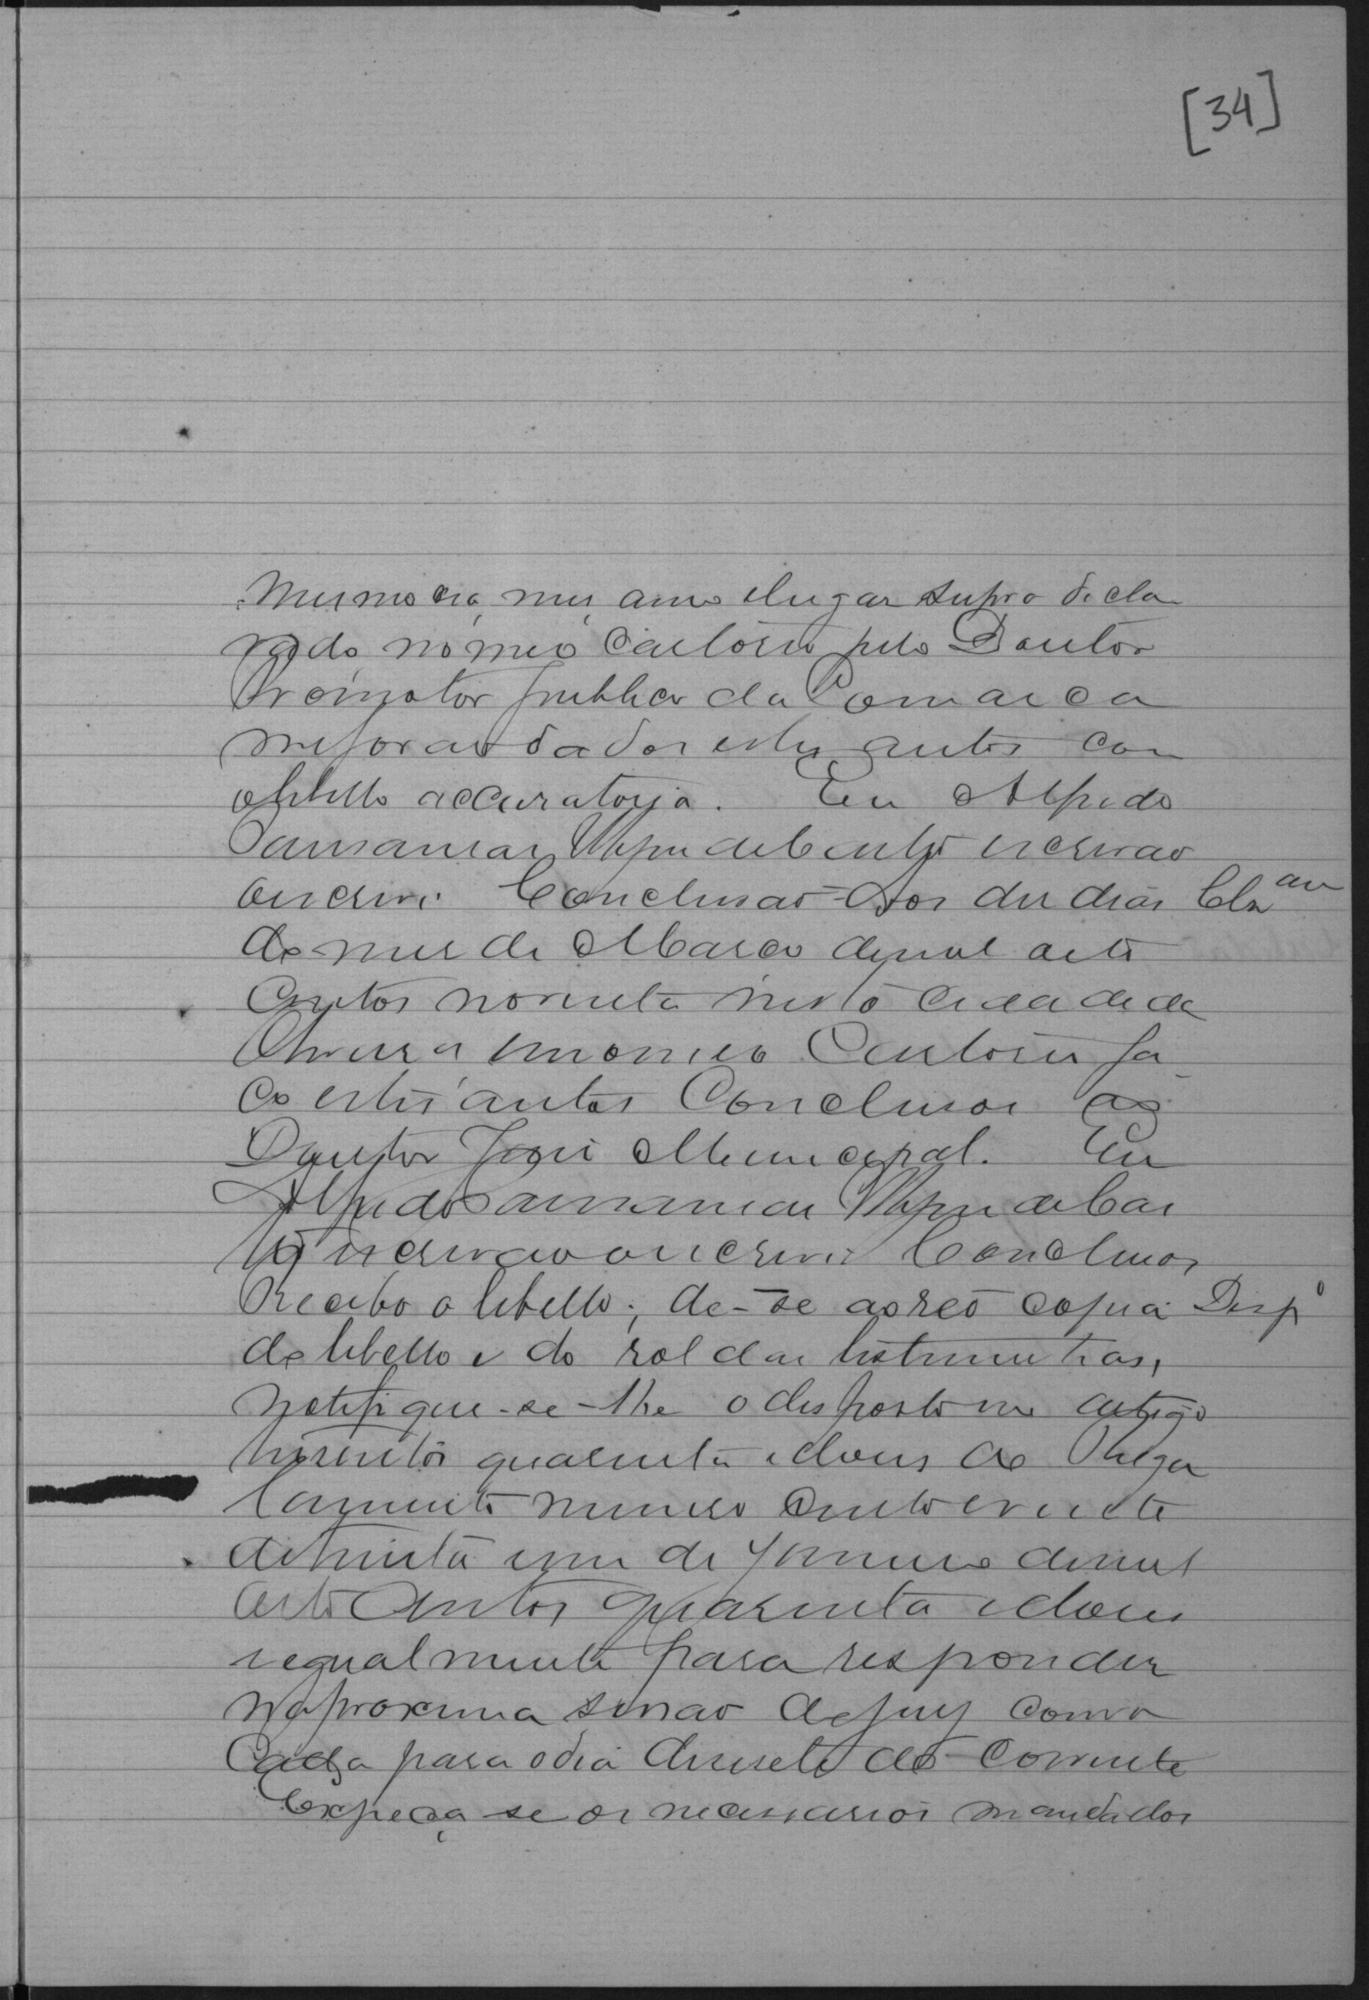 [34]
mesmo dia, mes, anno e lugar supra decla
rado no meo Cartorio pelo Doutor
Promotor publico da Comarca
me foram dados estes autos com
o libello accusatorio. Eu Alfredo
escrivão
o escrevi. Conclusão Aos dez dias Clzam
do mes de Março de mil oito
centos noventa nesta cidade de
Oliveira em o meo Cartorio fa
ço estes autos Conclusos ao
Doutor Juiz Municipal. Eu
Alfredo
escrivão o escrevi. Conclusos
Recebo o libello; de-se ao reo copia Desp.o
do libello e do rol das testemunhas,
notifique-se-lhe o disposto no artigo
tresentos quarenta e dous do Regu
lamento numero cento e vinte
de trinta e um de Janeiro de mil
oito centos quarenta e dous
e egualmente para responder
na proxima sessão do jury convo
cada para o dia desesete do corrente
Expeça-se os necessarios mandados